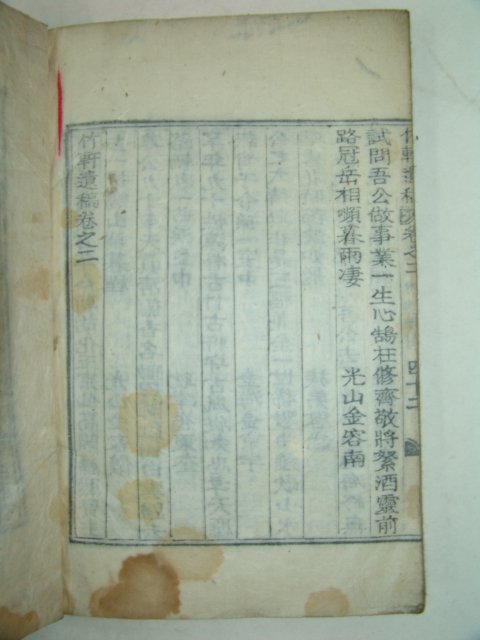 竹軒遺稿卷之二 四十二
試問吾公做事業一生心鵠在修齊敬將絮酒靈前
路冠岳相嚬暮雨凄
光山金容南
竹軒遺稿卷之二